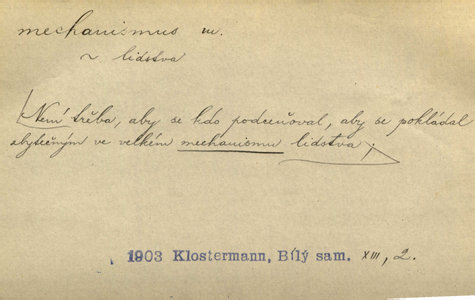 mechanismus m.
~ lidstva
Není třeba, aby se kdo podceňoval, aby se pokládal
zbytečným ve velkém mechanismu lidstva;
1903 Klostermann, Bílý sam. XIII, 2.